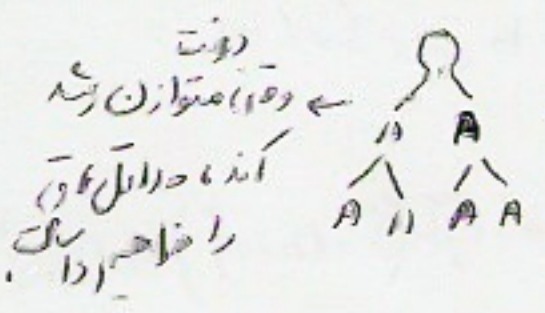 درخت
← وقتی متوازن رشد
کند، حداقل
را خواهیم داشت.
A A
A A A A